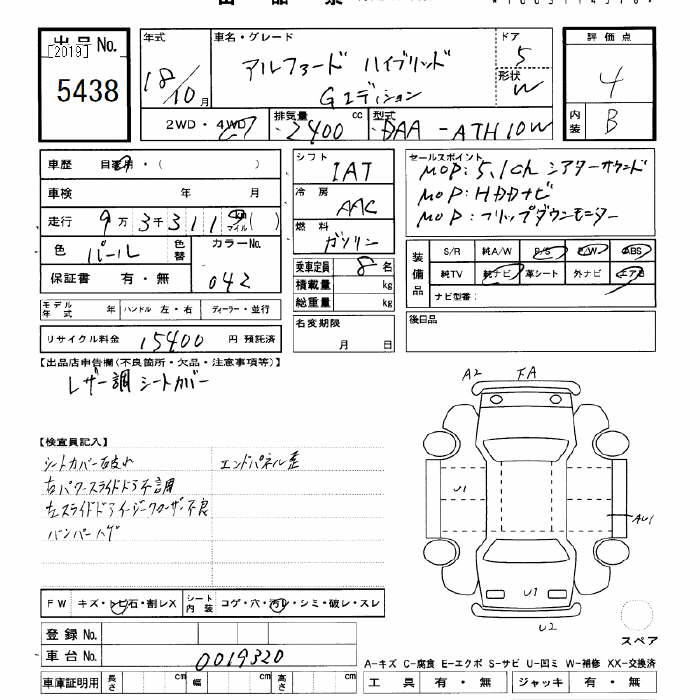 出品No.
[2019]
5438
年式
18/10月
車名・グレード
アルファード ハイブリッド
Gエディション
ドア
5
形状
W
2WD・4WD
排気量
2400 cc
型式
DAA-ATH10W
評価点
4
内装
B
車歴 自家用・( )
車検 年 月
走行 9万3千311 km マイル ( )
色 パール 色替 カラーNo.
042
保証書 有・無
モデル年式 年 ハンドル 左・右 ディーラー・並行
リサイクル料金 15400 円 預託済
シフト
IAT
冷房
AAC
燃料
ガソリン
乗車定員 8名
積載量 kg
総重量 kg
名変期限
月 日
セールスポイント
MOP:5,1ch シアターサウンド
MOP:HDDナビ
MOP:フリップダウンモニター
装備品
S/R 純A/W P/S P/W ABS
純TV 純ナビ 革シート 外ナビ エアB
ナビ型番:
後日品
【出品店申告欄(不良箇所・欠品・注意事項等)】
レザー調シートカバー
【検査員記入】
シートカバー破れ エンドパネル歪
右パワースライドドア不調
左スライドドアイージークローザー不良
バンパーハゲ
A2 FA
U1
AU1
U1
U2
スペア
FW キズ・トビ石・割レX シート内装 コゲ・穴・汚レ・シミ・破レ・スレ
登録No.
車台No. 0019320
車庫証明用 長さ cm 幅 cm 高さ cm
A-キズ C-腐食 E-エクボ S-サビ U-凹ミ W-補修 XX-交換済
工具 有・無 ジャッキ 有・無